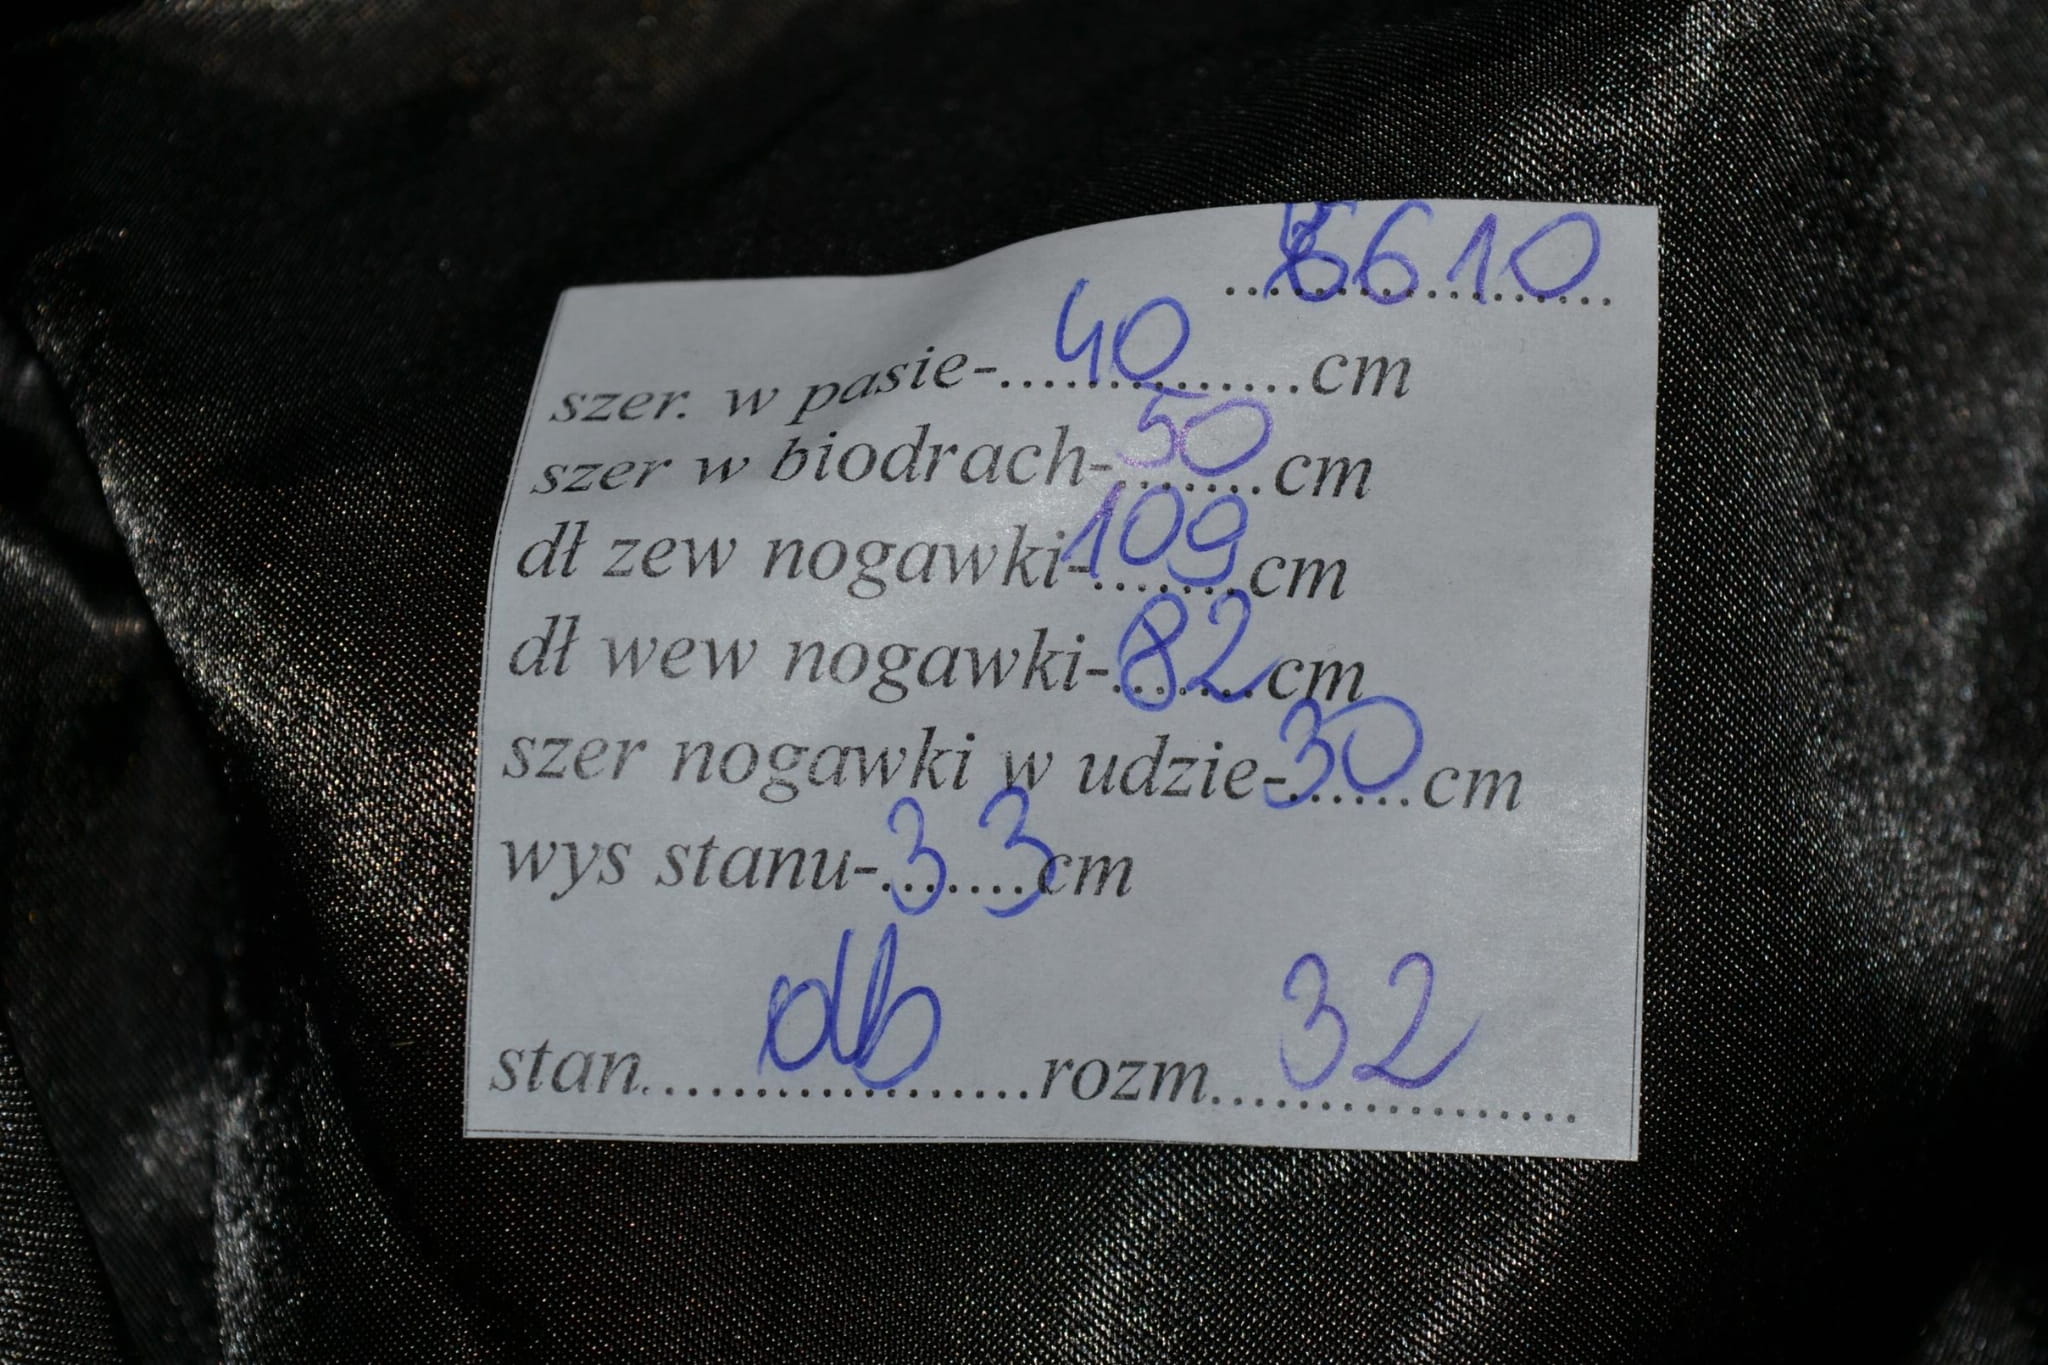 6610
szer. w pasie-40cm
szer w biodrach-50cm
dł zew nogawki-109cm
dł wew nogawki-82cm
szer nogawki w udzie-30cm
wys stanu-33cm
stan db rozm 32